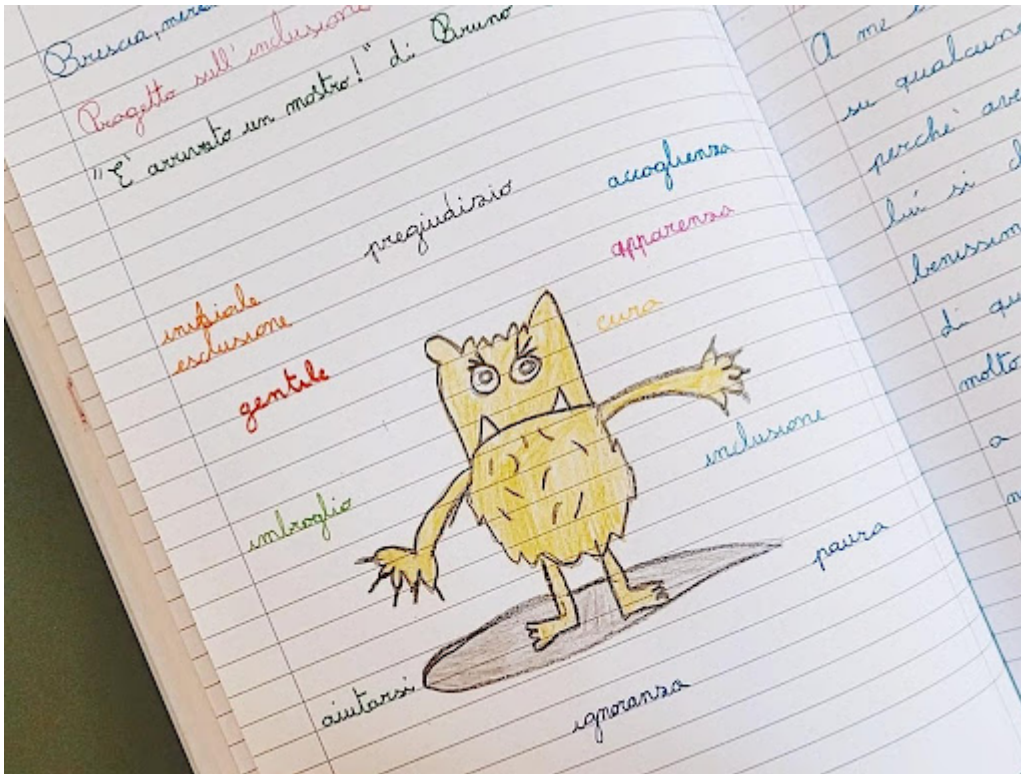 Brescia,
Progetto sull'inclusione
"È arrivato un mostro!" di Bruno
pregiudizio
accoglienza
apparenza
esclusione
cura
gentile
inclusione
imbroglio
paura
aiutarsi
ignoranza
A me
su qualcuno
perchè
lui si
benissim
di qu
molto
a